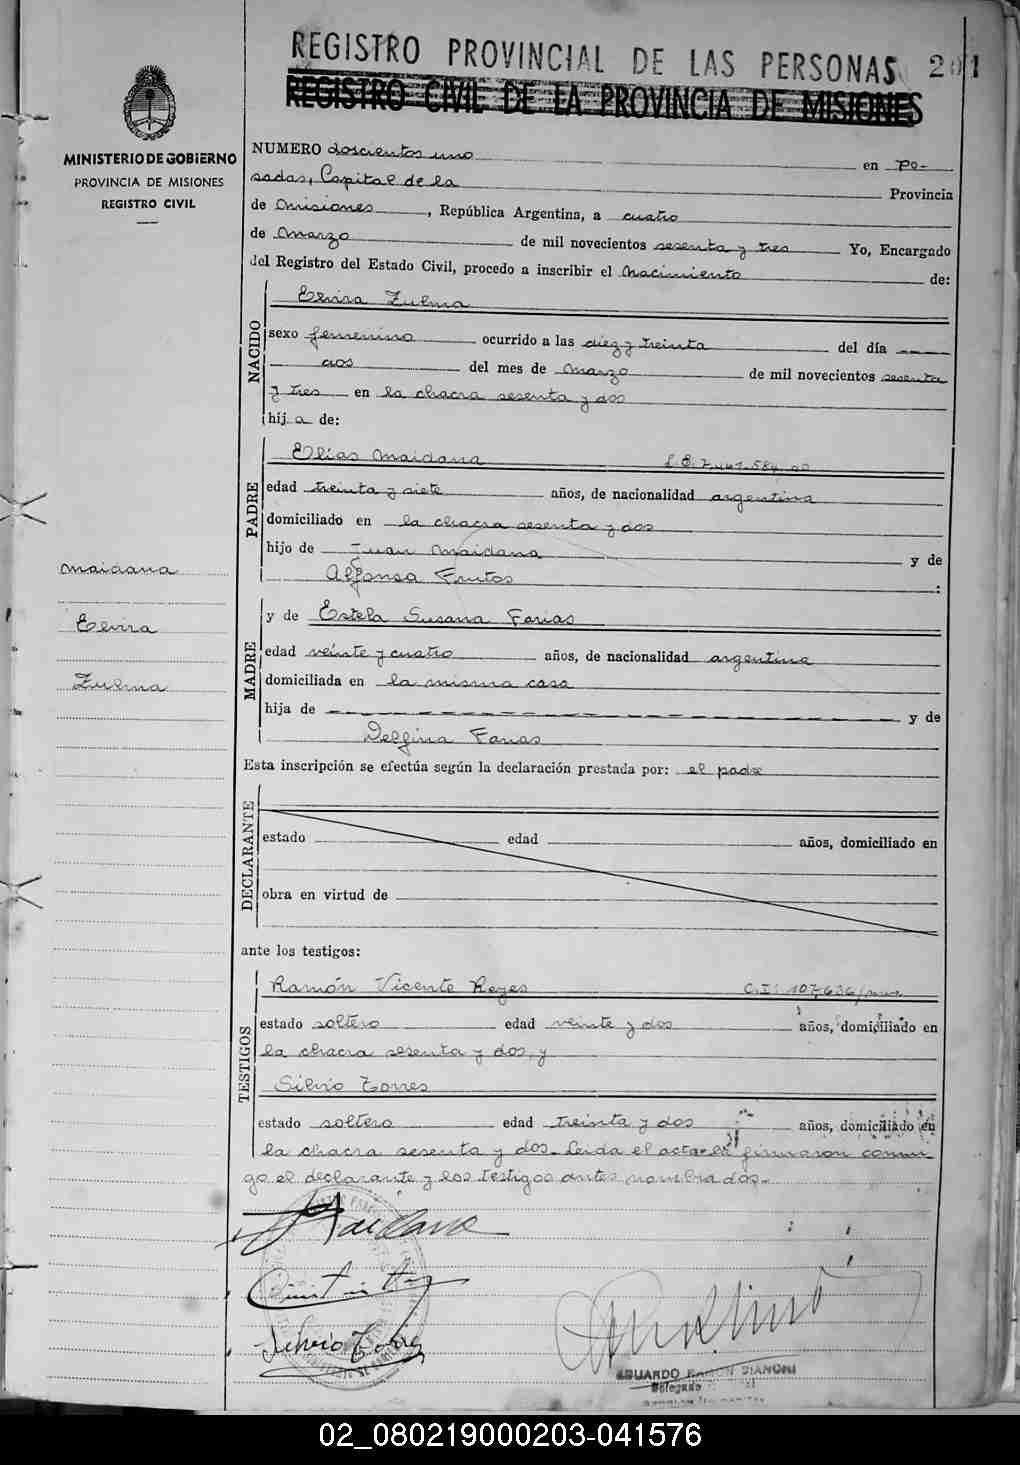 REGISTRO PROVINCIAL DE LAS PERSONAS 201
REGISTRO CIVIL DE LA PROVINCIA DE MISIONES
MINISTERIO DE GOBIERNO
PROVINCIA DE MISIONES
REGISTRO CIVIL
NUMERO doscientos uno en Po-
sadas, Capital de la Provincia
de Misiones, República Argentina, a cuatro
de Marzo de mil novecientos sesenta y tres Yo, Encargado
del Registro del Estado Civil, procedo a inscribir el Nacimiento de:
NACIDO
Elvira Zulma
sexo femenino ocurrido a las diez y treinta del día
dos del mes de Marzo de mil novecientos sesenta
y tres en la chacra sesenta y dos
hija de:
PADRE
Elías Maidana L.E.
edad treinta y siete años, de nacionalidad argentina
domiciliado en la chacra sesenta y dos
hijo de Juan Maidana y de
Alfonsa Frutos
Maidana
Elvira
Zulma
MADRE
y de Estela Susana Farias
edad veinte y cuatro años, de nacionalidad argentina
domiciliada en la misma casa
hija de y de
Delfina Farias
Esta inscripción se efectúa según la declaración prestada por: el padre
DECLARANTE
estado edad años, domiciliado en
obra en virtud de
ante los testigos:
TESTIGOS
Ramón Vicente Reyes C.I: 107,636
estado soltero edad veinte y dos años, domiciliado en
la chacra sesenta y dos, y
Silvio Torres
estado soltero edad treinta y dos años, domiciliado en
la chacra sesenta y dos. Leída el acta la firmaron conmi-
go el declarante y los testigos antes nombrados.-
Maidana
Silvio Torres
EDUARDO RAMON BIANCHI
Delegado
02_080219000203-041576